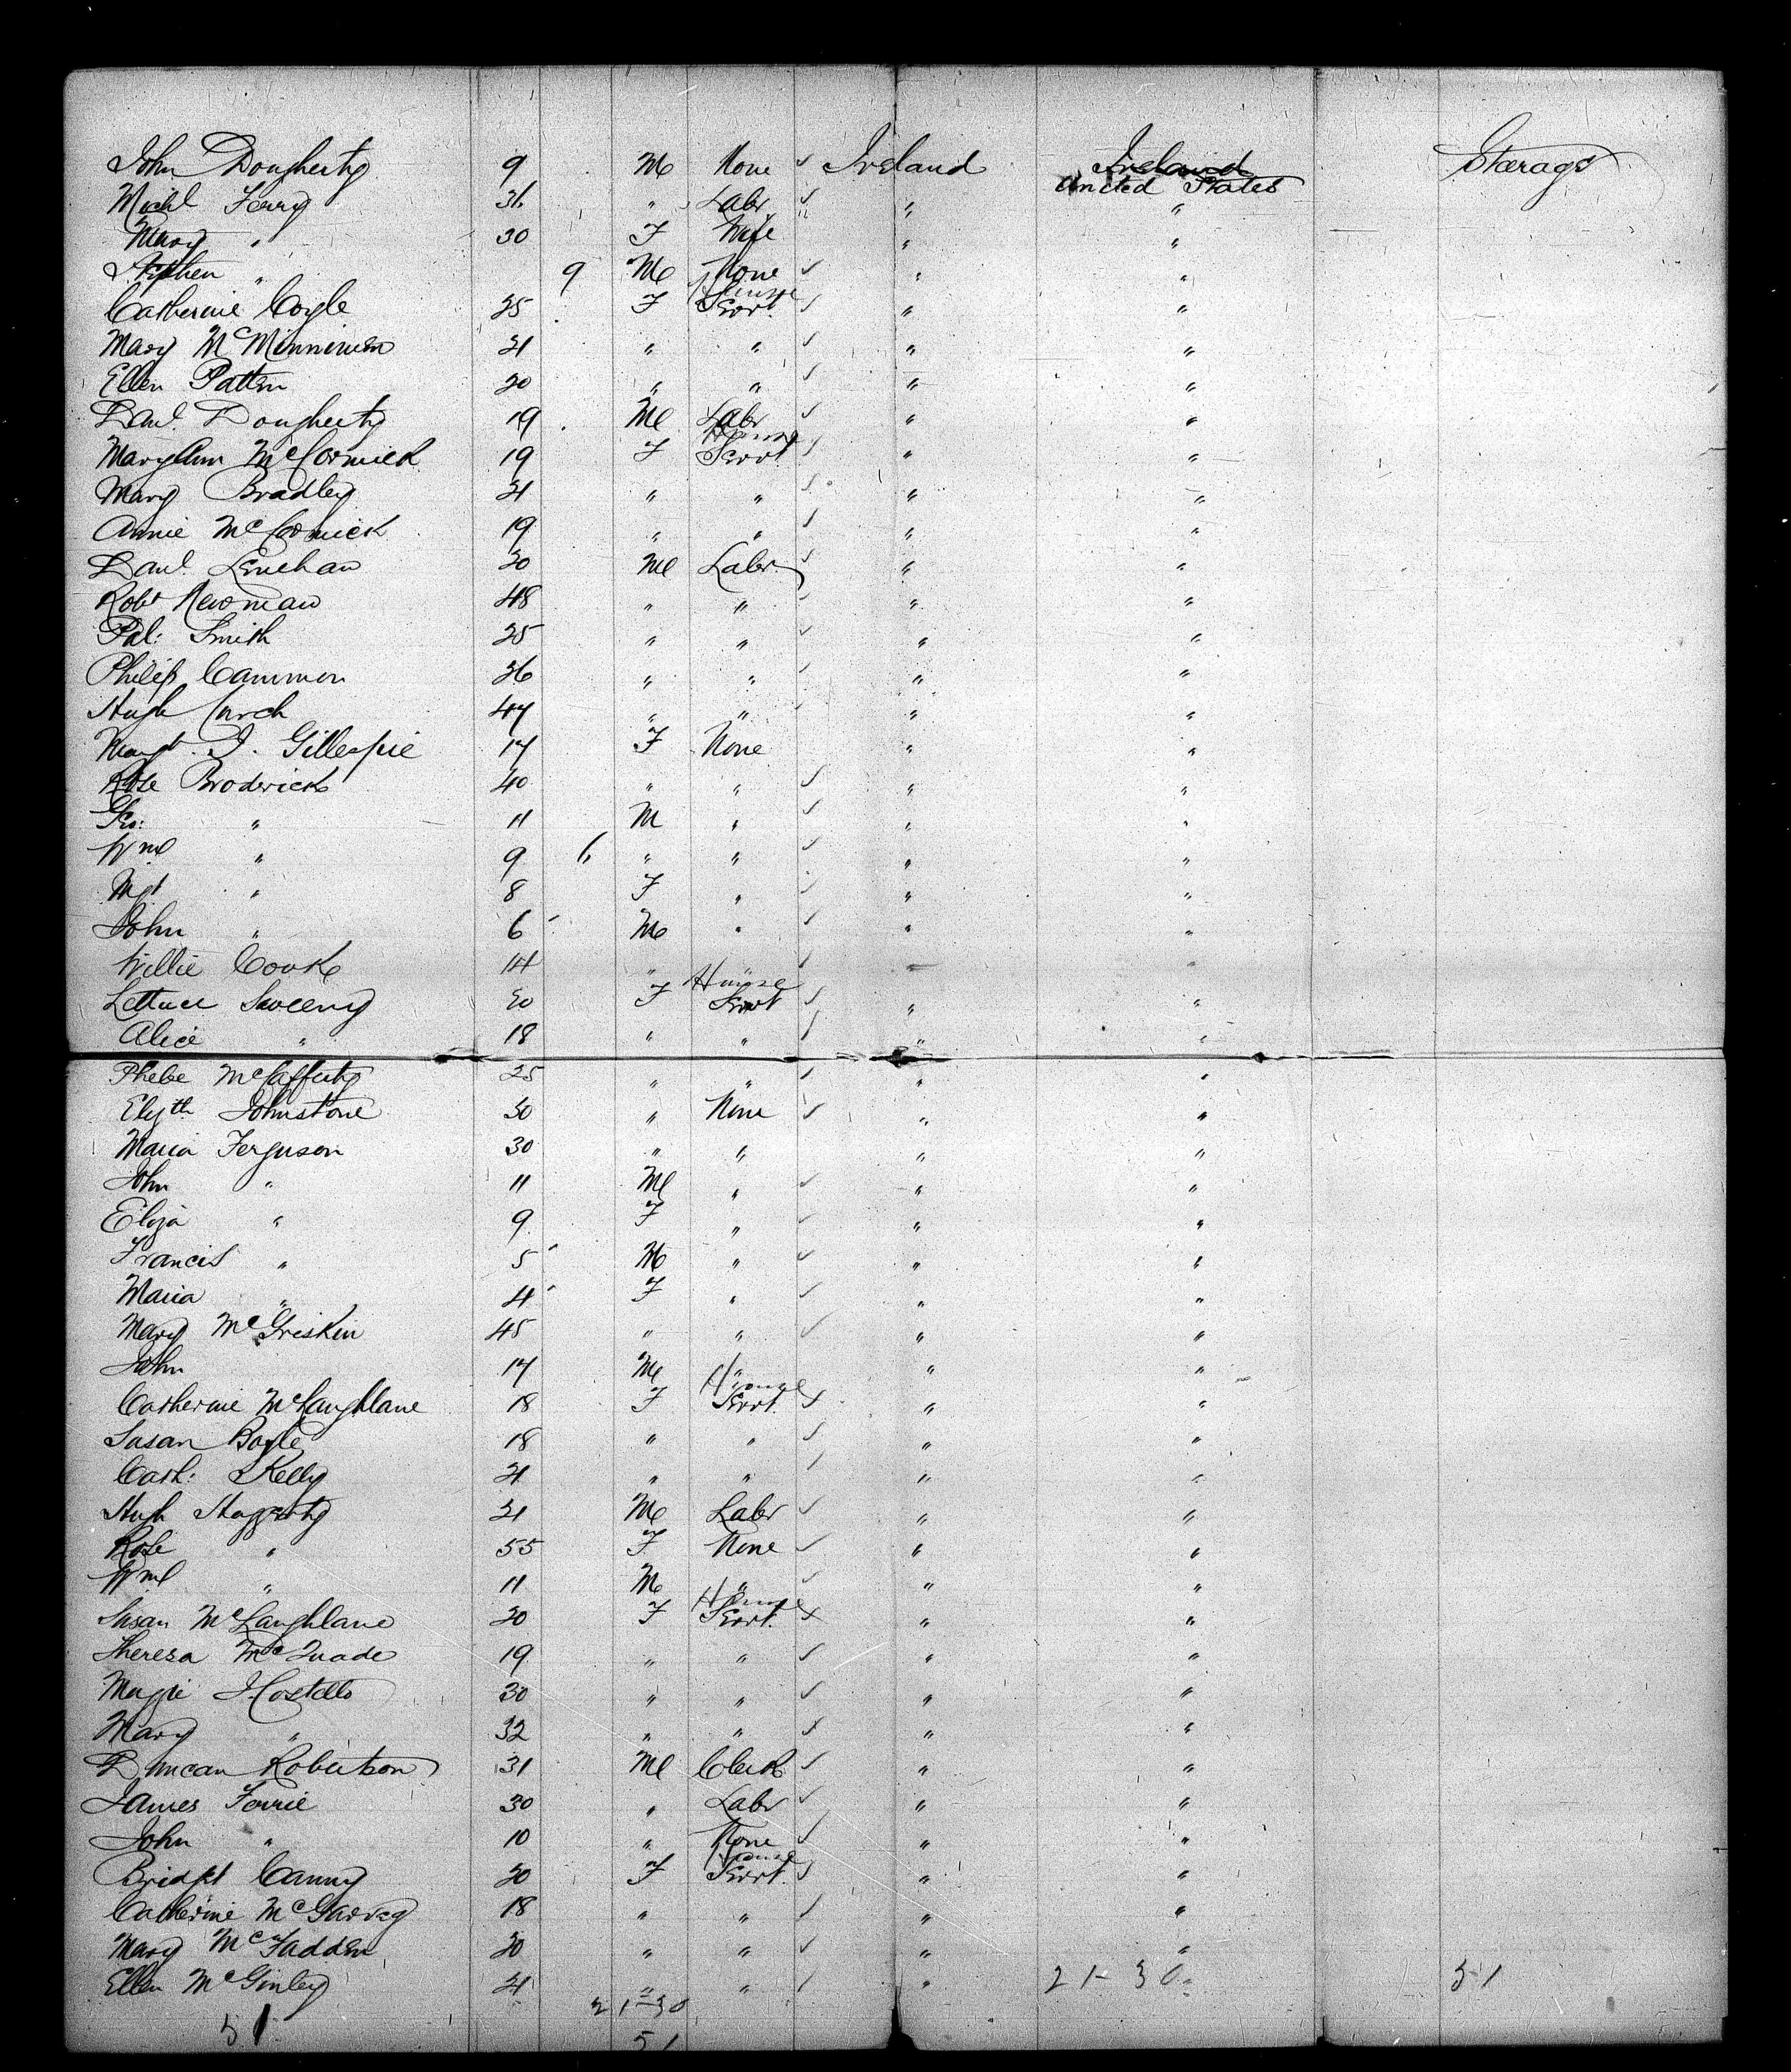 John Dougherty 9 M None ✓ Ireland Ireland Steerage
United States
Michl Ferry 36 " Labr ✓ " "
Mary " 30 F Wife " " "
Stephen " 9 M None ✓ " "
Catherine Coyle 25 F House Servt. ✓ " "
Mary McMinnimen 21 " " ✓ " "
Ellen Patten 20 " " ✓ " "
Danl. Dougherty 19 M Labr ✓ " "
MaryAnn McCormick 19 F House Servt. ✓ " "
Mary Bradley 21 " " ✓ " "
Annie McCormick 19 " " ✓ " "
Danl. Lenehan 20 M Labr. ✓ " "
Robt Newman 48 " " ✓ " "
Pat: Smith 25 " " ✓ " "
Philip Cammon 26 " " ✓ " "
Hugh 47 " " ✓ " "
Margt. J. Gillespie 17 F None " "
Rose Broderick 40 " " ✓ " "
Geo: " 11 M " ✓ " "
Wm " 9 " " ✓ " "
Mgt " 8 F " ✓ " "
John " 6 M " ✓ " "
Willie Cooke 14 " " ✓ " "
Lettuce Sweeny 20 F House Servt ✓ " "
Alice " 18 " " ✓ " "
Phebe McCafferty 25 " " ✓ " "
Elyth Johnstone 30 " None ✓ " "
Maria Ferguson 30 " " " "
John " 11 M " ✓ " "
Eliza " 9 F " ✓ " "
Francis " 5 M " ✓ " "
Maria " 4 F " ✓ " "
Mary McGriskin 45 " " ✓ " "
John 17 M " " "
Catherine McLaughlane 18 F House Servt. x " "
Susan Boyle 18 " " ✓ " "
Cath: Kelly 21 " " ✓ " "
Hugh Haggerty 21 M Labr ✓ " "
Rose " 55 F None ✓ " "
Wm " 11 M " ✓ " "
Susan McLaughlane 20 F House Servt. x " "
Theresa McQuade 19 " " ✓ " "
Maggie J. Costello 30 " " ✓ " "
Mary " 32 " " ✓ " "
Duncan Robertson 31 M Clerk ✓ " "
James Ferrie 30 " Labr ✓ " "
John " 10 " None ✓ " "
Bridget Canny 20 F House Servt. ✓ " "
Catherine McGarvey 18 " " ✓ " "
Mary McFadden 20 " " ✓ " "
Ellen McGinley 21 " " ✓ " 21-30 51
21-30
51 51